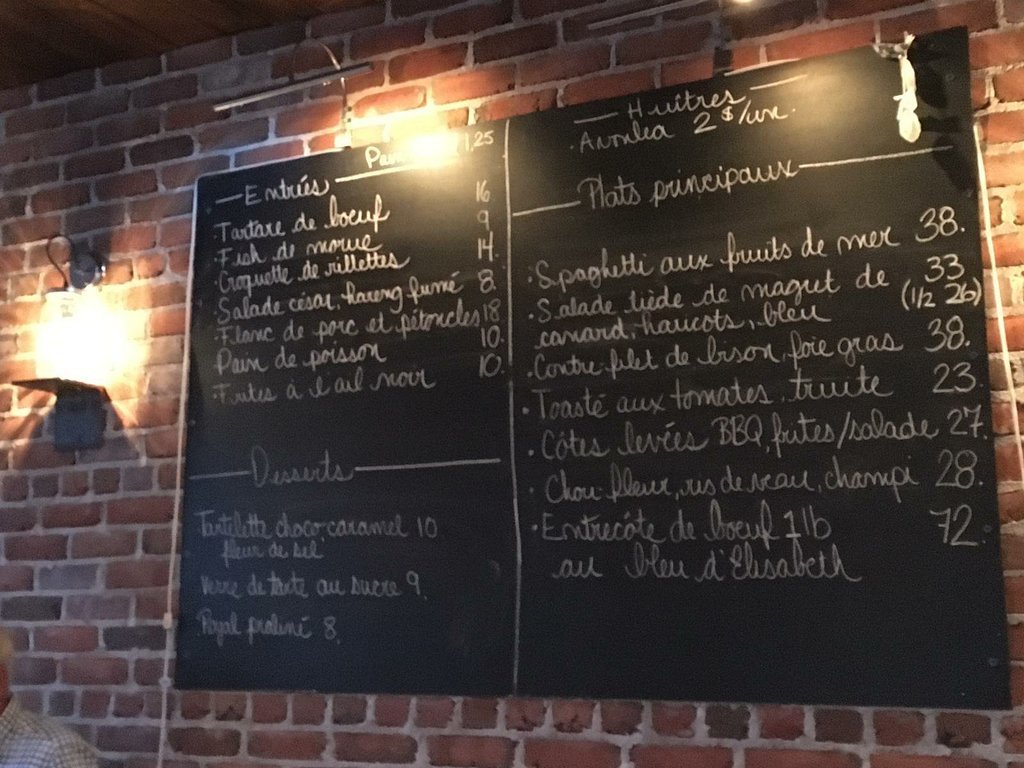 Pain 1,25
Entrées
Tartare de boeuf 16
Fish de morue 9
Croquette de rillettes 14
Salade césar, hareng fumé 8
Flanc de porc et pétoncles 18
Pain de poisson 10.
Frites à l'ail noir 10.
Desserts
Tartelette choco, caramel 10
fleur de sel
Verre de tarte au sucre 9.
Royal praliné 8.
Huîtres
Avonlea 2$/un.
Plats principaux
Spaghetti aux fruits de mer 38.
Salade tiède de magret de 33
canard, haricots, bleu (1/2 26)
Contre filet de bison, foie gras 38.
Toasté aux tomates, truite 23
Côtes levées BBQ, frites/salade 27.
Chou-fleur, ris de veau, champi 28.
Entrecôte de boeuf 1 lb 72.
au bleu d'Elisabeth